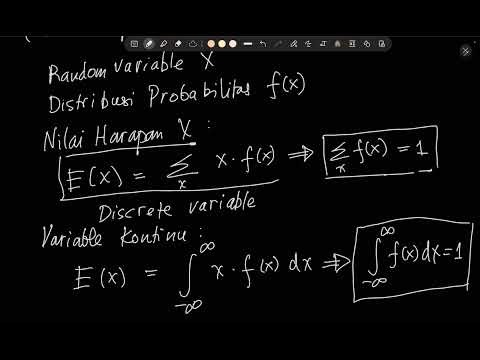 Random variable X
Distribusi Probabilitas f(x)
Nilai Harapan X :
E(x) = ∑ₓ x · f(x) ⇒ ∑ₓ f(x) = 1
Discrete variable
Variable Kontinu :
E(x) = ∫_{-∞}^{∞} x · f(x) dx ⇒ ∫_{-∞}^{∞} f(x) dx = 1